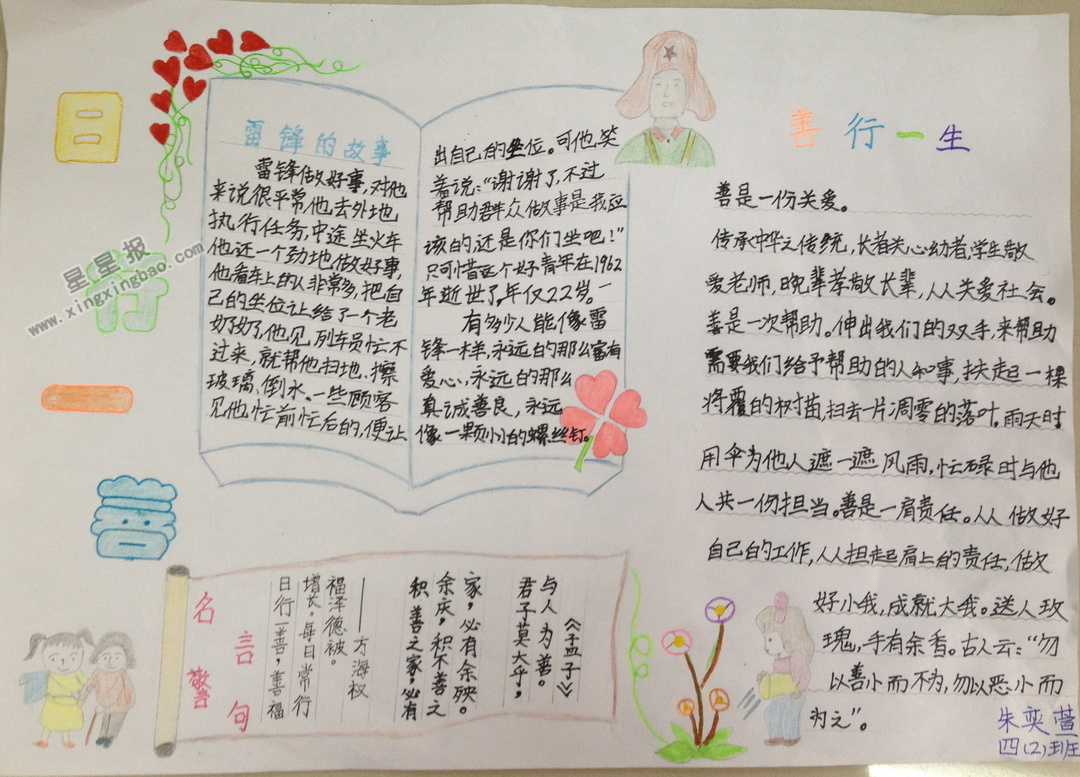 日
行
一
善
星星报
www.xingxingbao.com
雷锋的故事
雷锋做好事,对他
来说很平常他去外地
执行任务,中途坐火车
他还一个劲地做好事,
他看车上的人非常多,把自
己的坐位让给了一个老
奶奶,他见列车员忙不
过来,就帮他扫地、擦
玻璃、倒水、一些顾客
见他忙前忙后的,便让
出自己的坐位。可他笑
着说:“谢谢了,不过
帮助群众做事是我应
该的,还是你们坐吧!”
只可惜这个好青年在1962
年逝世了,年仅22岁。一
有多少人能像雷
锋一样,永远的那么富有
爱心,永远的那么
真诚善良,永远
像一颗小小的螺丝钉。
善行一生
善是一份关爱。
传承中华之传统,长者关心幼者,学生敬
爱老师,晚辈孝敬长辈,人人关爱社会。
善是一次帮助。伸出我们的双手,来帮助
需要我们给予帮助的人和事,扶起一棵
将覆的树苗,扫去一片凋零的落叶。雨天时
用伞为他人遮一遮风雨,忙碌时与他
人共一份担当。善是一肩责任。人人做好
自己的工作,人人担起肩上的责任,做次
好小我,成就大我。送人玫
瑰,手有余香。古人云:“勿
以善小而不为,勿以恶小而
为之”。
名言警句
《孟子》
与人为善。
君子莫大乎,
家,必有余殃。
余庆,积不善之
积善之家,必有
——方海权
福泽德被。
增长。每日常行
日行一善,善福
朱奕萱
四(2)班